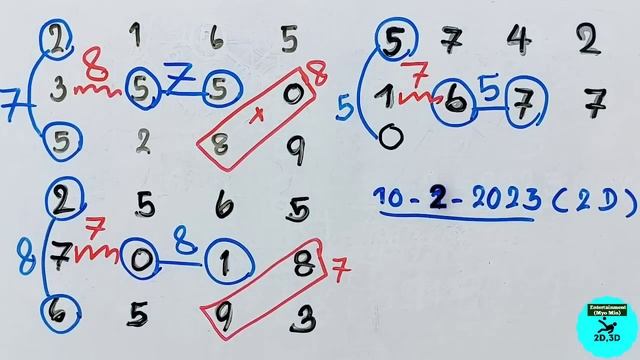 2 1 6 5
8 7 8
3 5 5 0
7 x
5 2 8 9
2 5 6 5
7 8
8 7 0 1 8 7
6 5 9 3
5 7 4 2
7 5
5 1 6 7 7
0
10-2-2023 (2D)
Entertainment
(Myo Min)
2D,3D